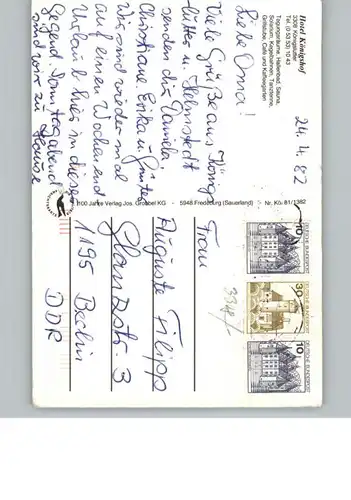 Hotel Königshof
3308 Königslutter
Tel. (0 53 53) 10 43
Tagungsräume, Hallenbad, Sauna,
Solarium, Kegelbahnen, Tanztenne,
Grillstube, Café und Kaffeegarten
24.4.82
Liebe Oma!
Viele Grüße aus Königs-
lutter u. Helmstedt
senden dir Daniela,
Christiane, Erika u. Günter
Wir sind wieder mal
auf ein Wochenend
Urlaub hier in dieser
Gegend. Sonntagabend
sind wir zu Hause
100 Jahre Verlag Jos. Grobbel KG · 5948 Fredeburg (Sauerland) · Nr. Kö. 81/1382
10
DEUTSCHE BUNDESPOST
30
10
DEUTSCHE BUNDESPOST
Frau
Auguste Filipp
Glanzstr. 3
1195 Berlin
DDR